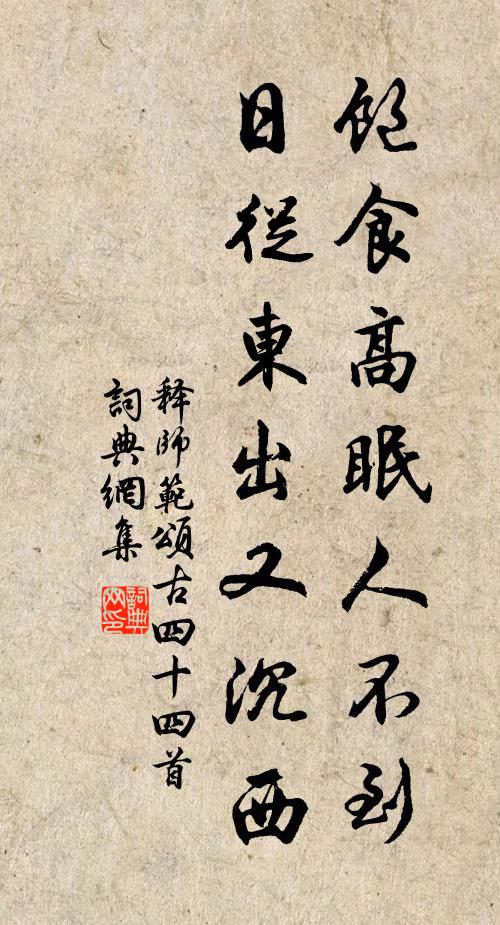 飽食高眠人不到
日從東出又沉西
释師範頌古四十四首
詞典網集
詞典网印